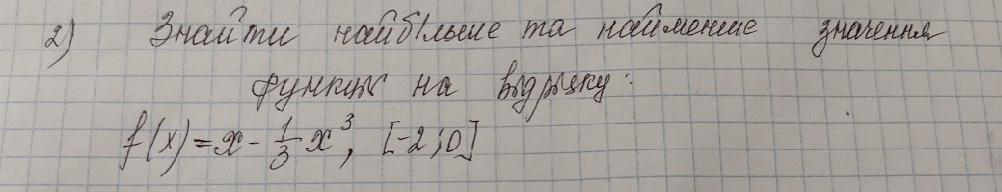 2) Знайти найбільше та найменше значення
функції на відрізку:
f(x) = x - \frac{1}{3} x^3, [-2; 0]